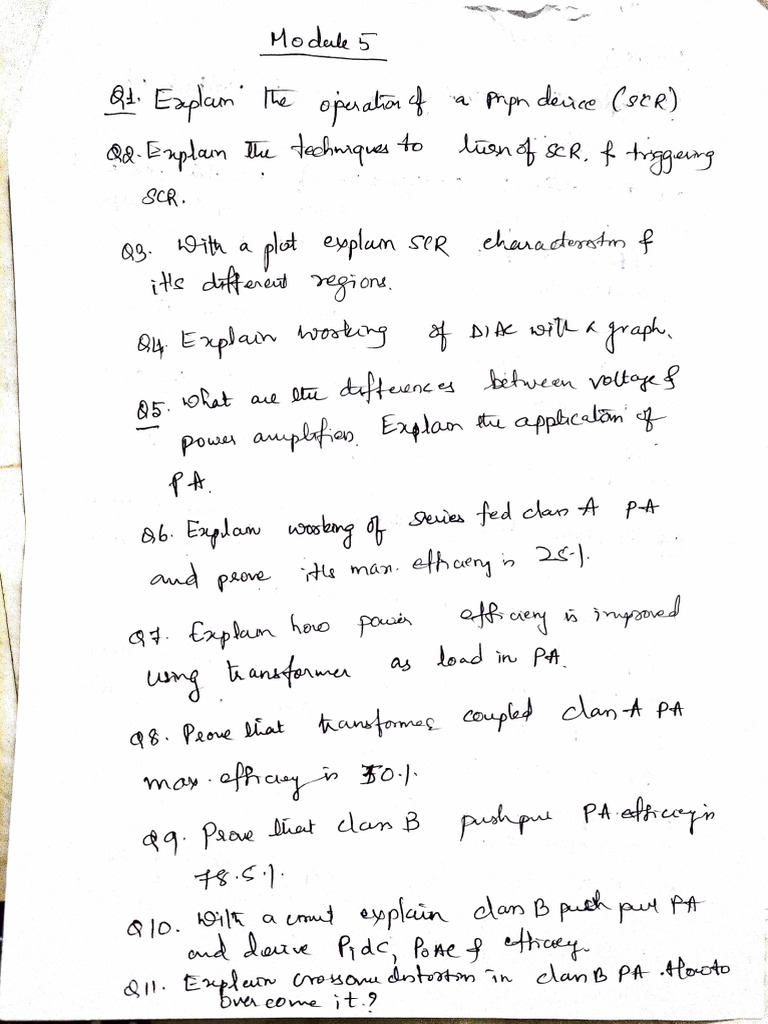 Module 5
Q1. Explain the operation of a pnpn device (SCR)
Q2. Explain the techniques to turn of SCR. & triggering
SCR.
Q3. With a plot explain SCR characterstm &
it's different regions.
Q4. Explain working of DIAC with a graph.
Q5. What are the differences between voltage &
power amplifier. Explain the application of
PA.
Q6. Explain working of series fed class A PA
and prove it's max. efficieny is 25%.
Q7. Explain how power efficieny is improved
using transformer as load in PA.
Q8. Prove that transformer coupled class-A PA
max. efficiey is 50%.
Q9. Prove that class B pushpull PA efficiey is
78.5%.
Q10. With a circuit explain class B push pull PA
and derive PiDC, PoAC & efficiey.
Q11. Explain crossover distortion in class B PA. How to
over come it.?